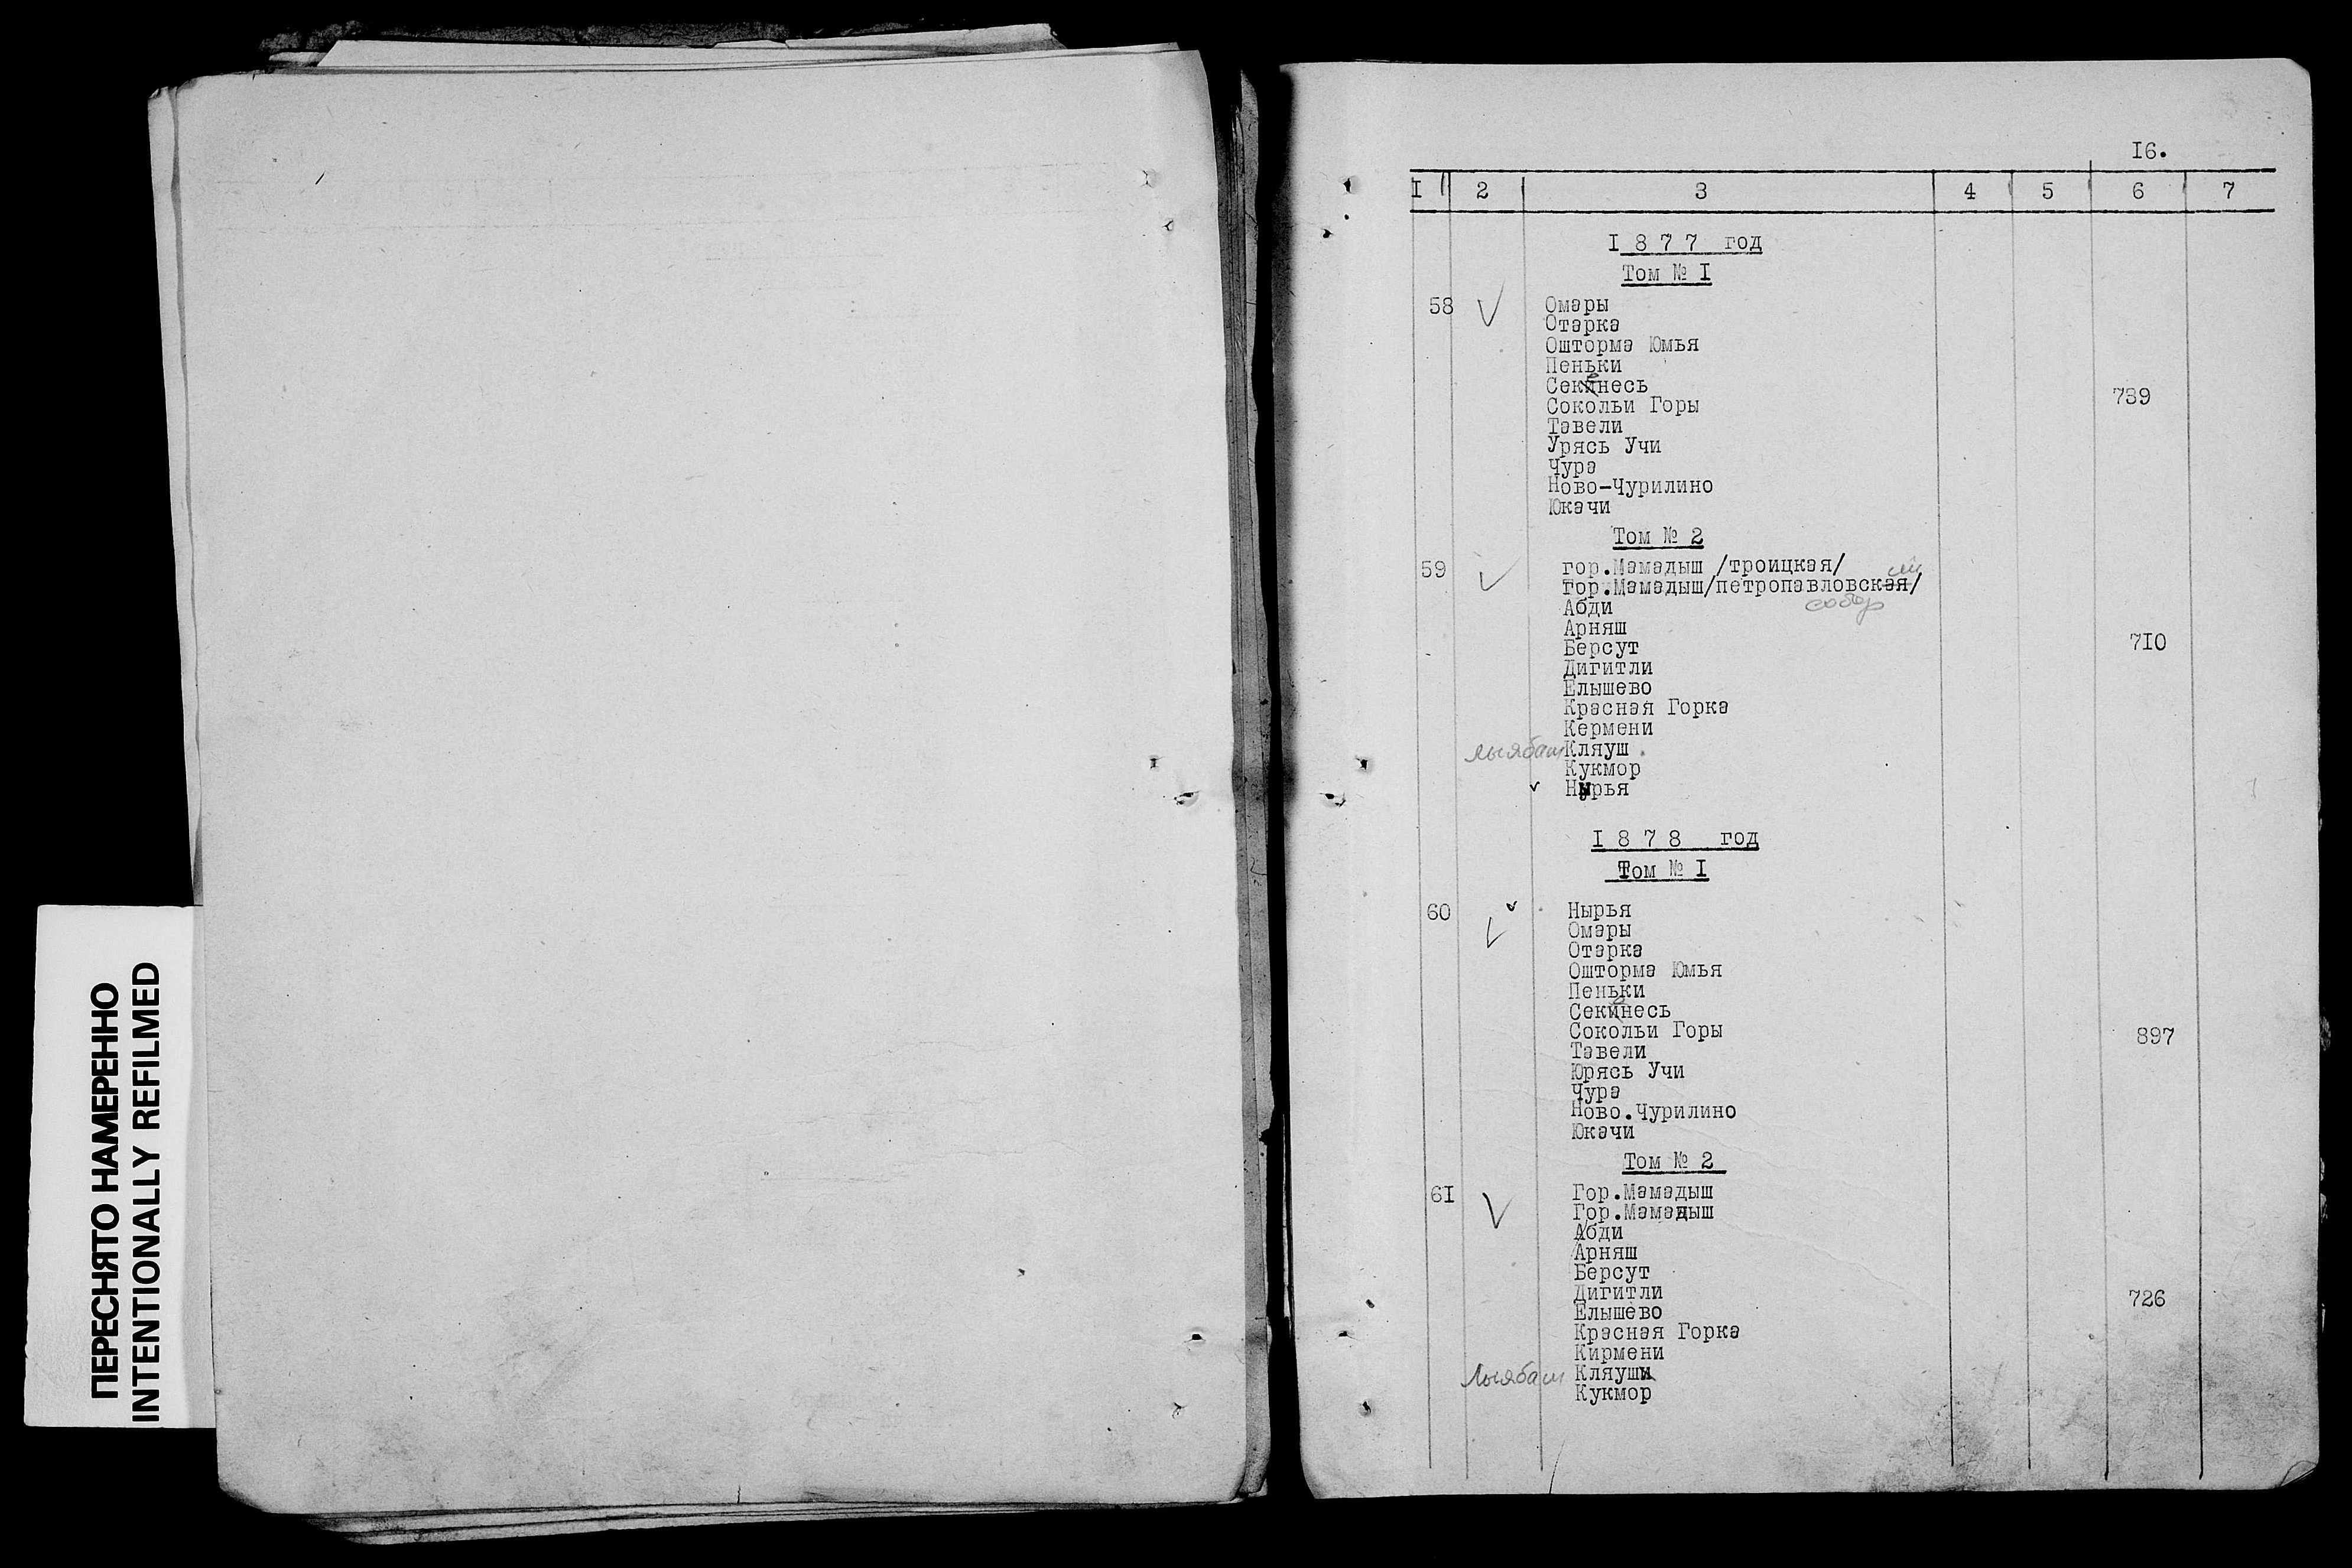 ПЕРЕСНЯТО НАМЕРЕННО
INTENTIONALLY REFILMED
16.
1 2 3 4 5 6 7
1877 год
Том № 1
58 Омары
Отарка
Ошторма Юмья
Пеньки
Секенесь
Сокольи Горы 739
Тавели
Урясь Учи
Чура
Ново-Чурилино
Юкачи
Том № 2
59 гор.Мамадыш /троицкая/
гор.Мамадыш/петропавловский/
собор
Абди
Арняш
Берсут 710
Дигитли
Елышево
Красная Горка
Кермени
Лыябаш Кляуш
Кукмор
Нырья
1878 год
Том № 1
60 Нырья
Омары
Отарка
Ошторма Юмья
Пеньки
Секенесь
Сокольи Горы 897
Тавели
Юрясь Учи
Чура
Ново.Чурилино
Юкачи
Том № 2
61 Гор.Мамадыш
Гор.Мамадыш
Абди
Арняш
Берсут
Дигитли 726
Елышево
Красная Горка
Кирмени
Лыябаш Кляуш
Кукмор